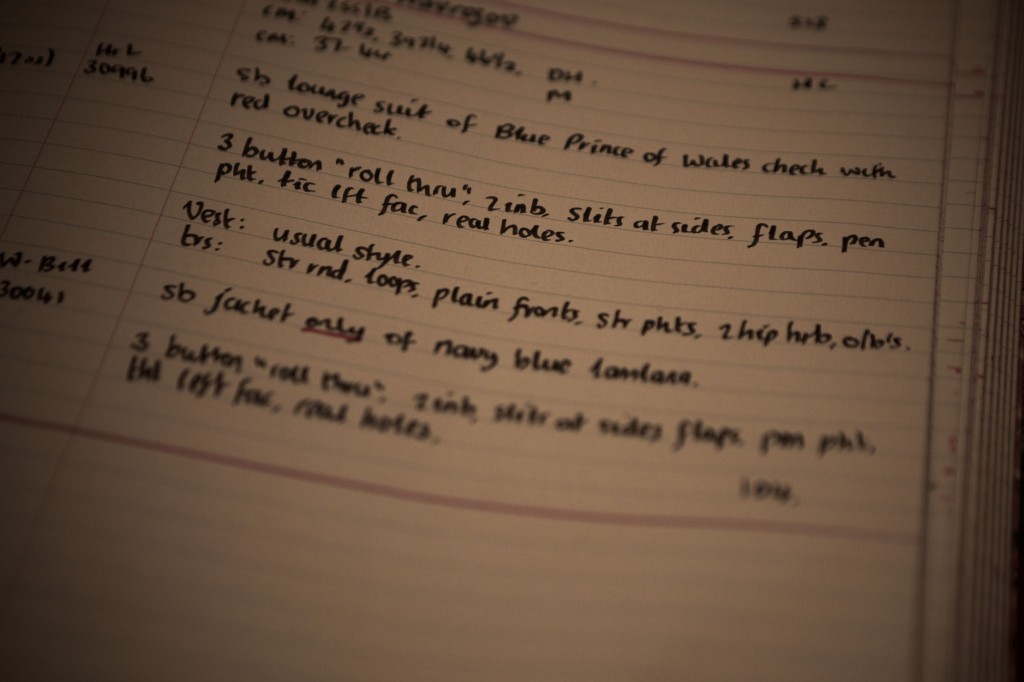 cm: 42½, 39¾, 44½, DH.
cm: 37 44 M
H&L
30996
sb lounge suit of Blue Prince of Wales check with
red overcheck.
3 button "roll thru", 2inb, slits at sides, flaps, pen
pkt, tic lft fac, real holes.
Vest: usual style.
trs: Str rnd, loops, plain fronts, str pkts, 2 hip hrb, o/b's.
W. Bill
30041
sb jacket only of navy blue
3 button "roll thru", 2inb, slits at sides flaps, pen pkt,
tkt left fac, real holes.